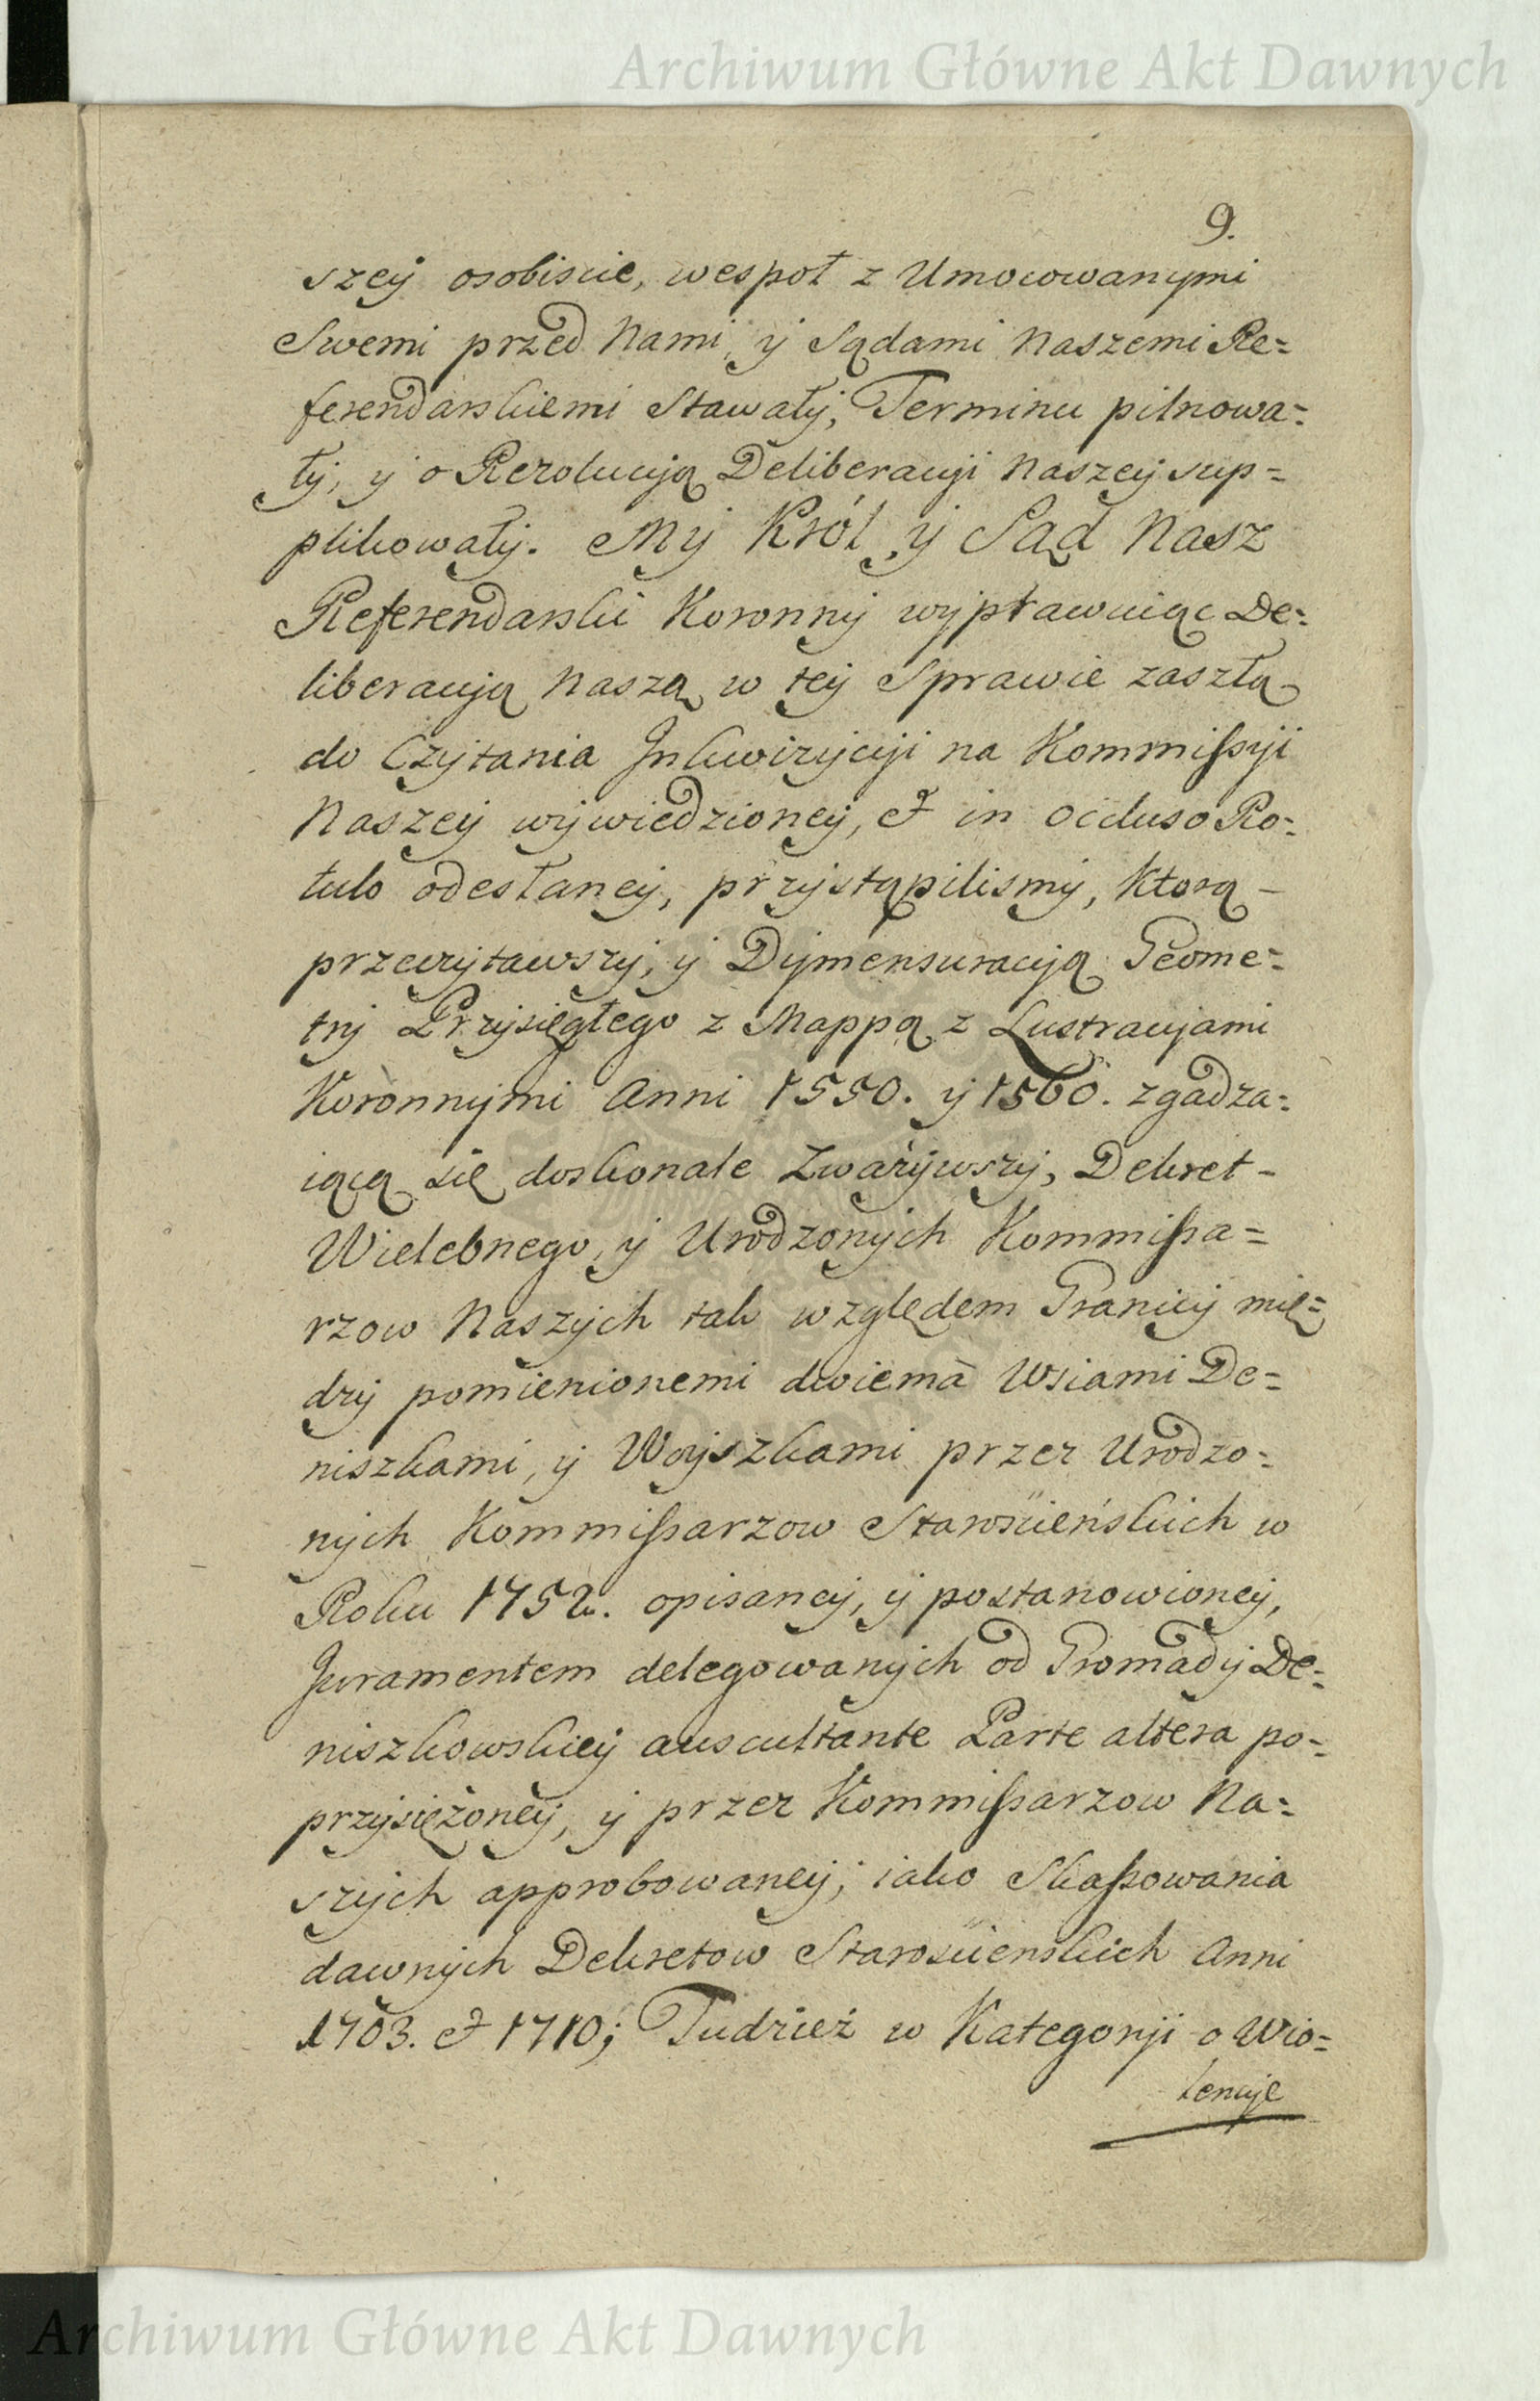 Archiwum Główne Akt Dawnych
9.
szey osobiscie, wespoł z Umocowanymi
Swemi przed Nami, y Sądami Naszemi Re=
ferendarskiemi Stawały, Terminu pilnowa=
ły, y o Rezolucyą Deliberacyi Naszey sup=
plikowały. My Król, y Sąd Nasz
Referendarski Koronny wyprawuiąc De=
liberacyą Naszą w tey Sprawie zaszłą
do Czytania Inkwizycyi na Kommissyi
Naszey wywiedzioney, et in occluso Ro=
tulo odesłaney, przystąpilismy, ktorą -
przeczytawszy, y Dymensuracyą Geome=
try Przysięgłego z Mappą z Lustracyami
Koronnymi Anni 1550. y 1560. zgadza=
iącą się doskonale Zważywszy, Dekret -
Wielebnego, y Urodzonych Kommissa=
rzow Naszych tak względem Granicy mię=
dzy pomienionemi dwiema Wsiami De=
niszkami, y Woyszkami przez Urodzo=
nych Kommissarzow Starościeńskich w
Roku 1752. opisaney, y postanowioney,
Juramentem delegowanych od Gromady De=
niszkowskiey auscultante Parte altera po=
przysiężoney, y przez Kommissarzow Na=
szych approbowaney; iako Skassowania
dawnych Dekretow Starościenskich Anni
1703. et 1710; Tudzież w Kategoryi o Wio=
lencye
Archiwum Główne Akt Dawnych